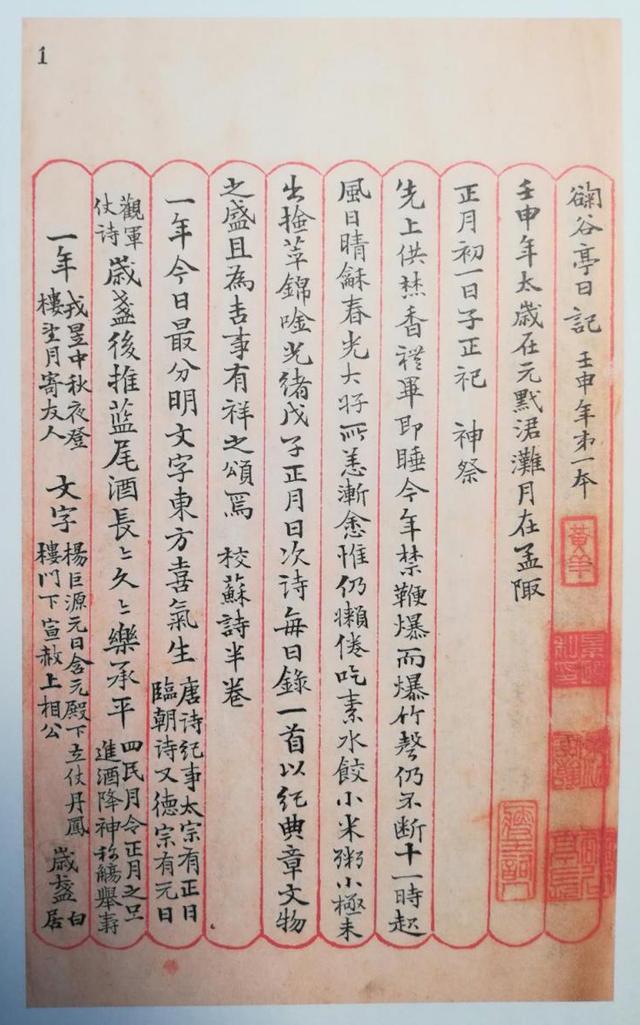 1
蘜谷亭日記 壬申年第一本
黄羊
壬申年太歲在元黓涒灘月在孟陬
正月初一日子正祀 神祭
先上供焚香禮畢即睡今年禁鞭爆而爆竹聲仍不断十一時起
風日晴龢春光大好所恙漸愈惟仍懶倦吃素水餃小米粥小極未
出撿萃錦唫光緒戊子正月日次詩每日錄一首以紀典章文物
之盛且為吉事有祥之頌焉 校蘇詩半卷
一年今日最分明文字東方喜氣生 唐诗纪事太宗有正日
臨朝诗又德宗有元日
觀軍
仗诗 歲盞後推蓝尾酒長〻久〻樂承平 四民月令正月之旦
進酒降神称觴舉壽
一年 戎昱中秋夜登
樓望月寄友人 文字 楊巨源元日含元殿下立仗丹鳳
樓門下宣赦上相公 歲盞 白
居